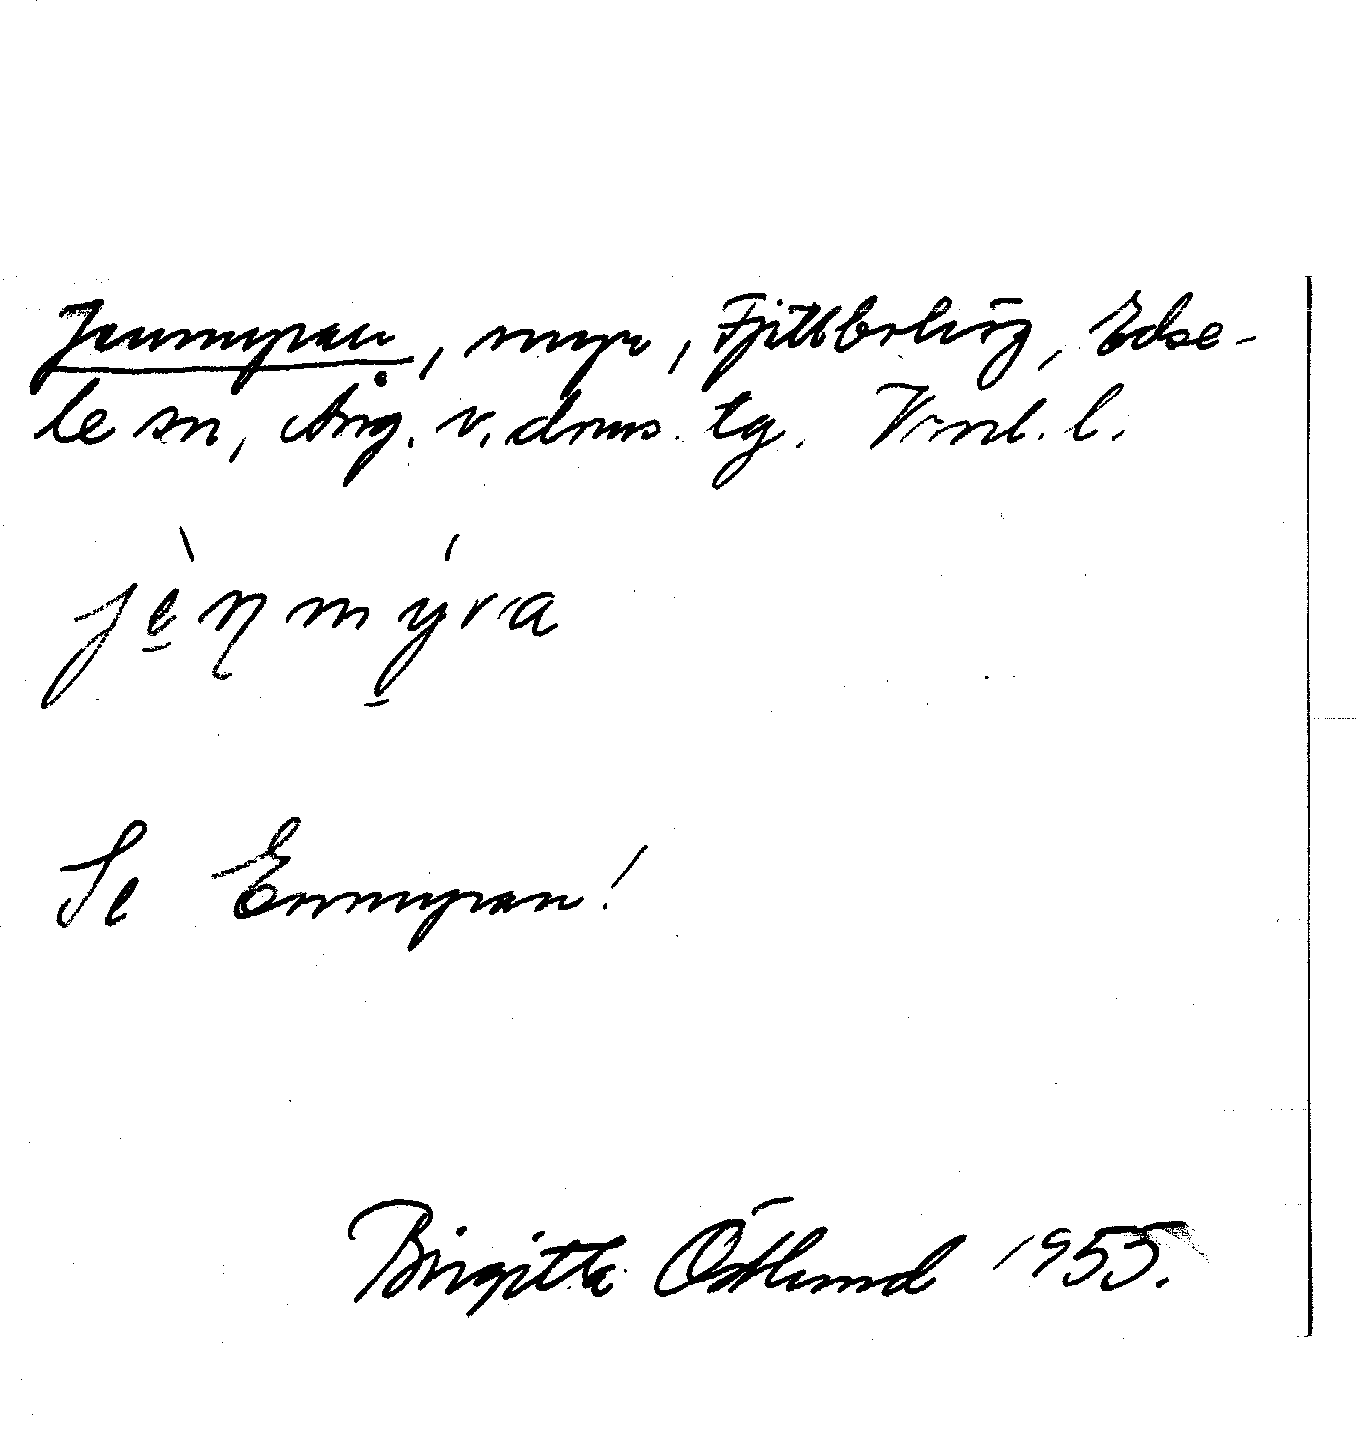 Jennmyran, myr, Fjällboläng, Edse-
le sn, Ång. v. doms. tg. Vnl. l.
jènmýra
Se Ennmyran!
Birgitta Östlund 1955.